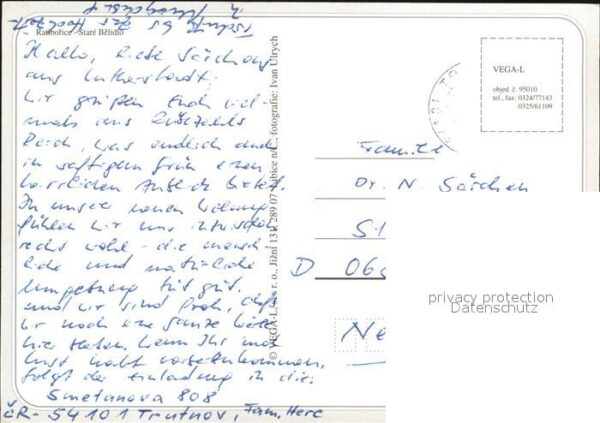 Ratibořice - Staré Bělidlo
Hallo, liebe Särchens
aus Lutherstadt.
Wir grüßen Euch viel-
mals aus Rübezahls
Reich, was endlich auch
in saftigem Grün einen
herrlichen Anblick bietet.
In unserer neuen Wohnung
fühlen wir uns inzwischen
recht wohl - die mensch-
liche und natürliche
Umgebung tut gut.
und wir sind froh, daß
wir noch eine ganze Weile
hier stehen. Wenn Ihr mal
Lust habt vorbeizukommen,
folgt der Einladung in die:
Smetanova 808
ČR- 54101 Trutnov, Fam. Herc
© VEGA-L, s r. o., Jižní 131, 289 07 Libice n/C., fotografie: Ivan Ulrych
VEGA-L
objed. č. 95010
tel., fax: 0324/77143
0325/61109
Familie
Dr. N. Särchen
D 06
privacy protection
Datenschutz